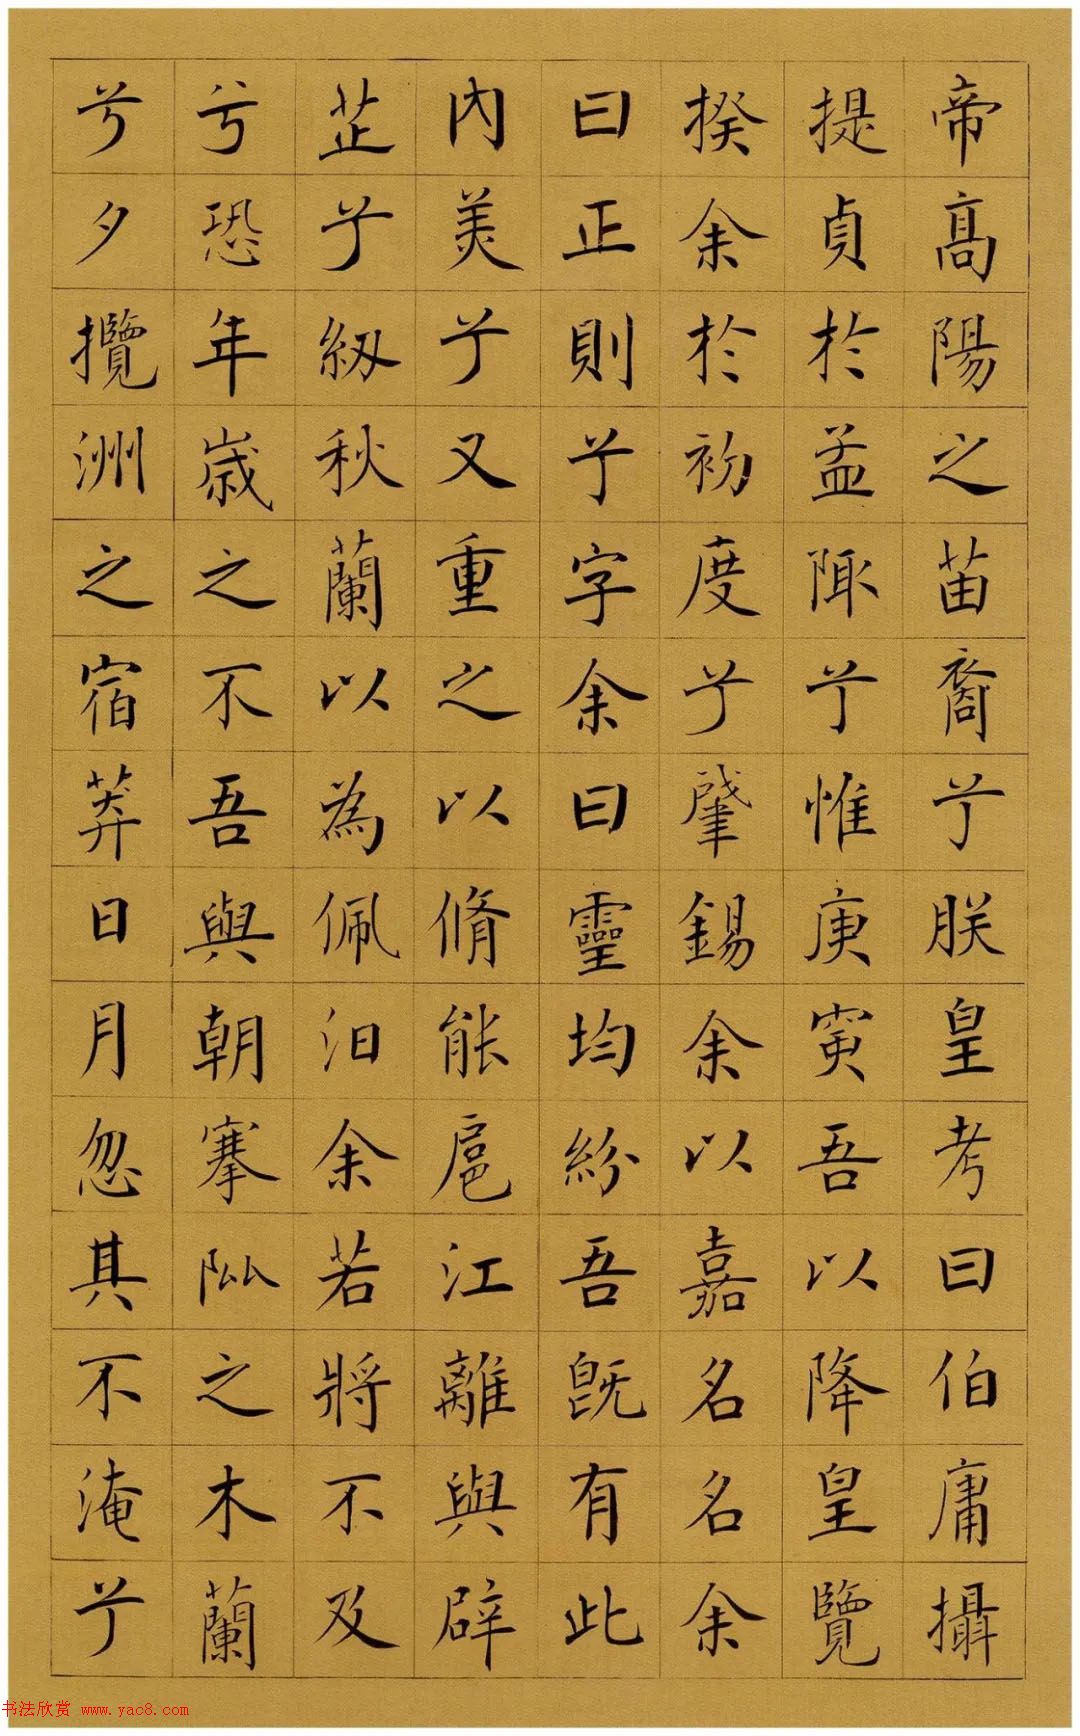 帝髙陽之苗裔兮朕皇考曰伯庸攝
提貞於孟陬兮惟庚寅吾以降皇覽
揆余於初度兮肇錫余以嘉名名余
曰正則兮字余曰靈均紛吾既有此
內美兮又重之以脩能扈江離與辟
芷兮紉秋蘭以為佩汩余若將不及
兮恐年歲之不吾與朝搴阰之木蘭
兮夕攬洲之宿莽日月忽其不淹兮
书法欣赏 www.yac8.com